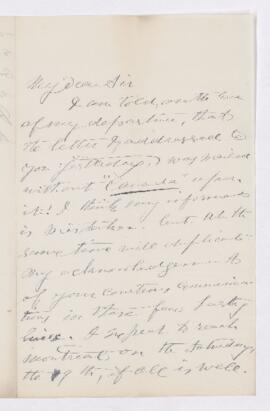 My dear Sir
I am told, on the eve
of my departure, that
the letter I addressed to
you yesterday, was mailed
without "Canada" upon
it! I think my informant
is mistaken. but at the
same time will duplicate
my acknowledgement
of your courteous communica-
tion in these few hasty
lines. I expect to reach
Montreal on the Saturday
the 19th, if all is well.